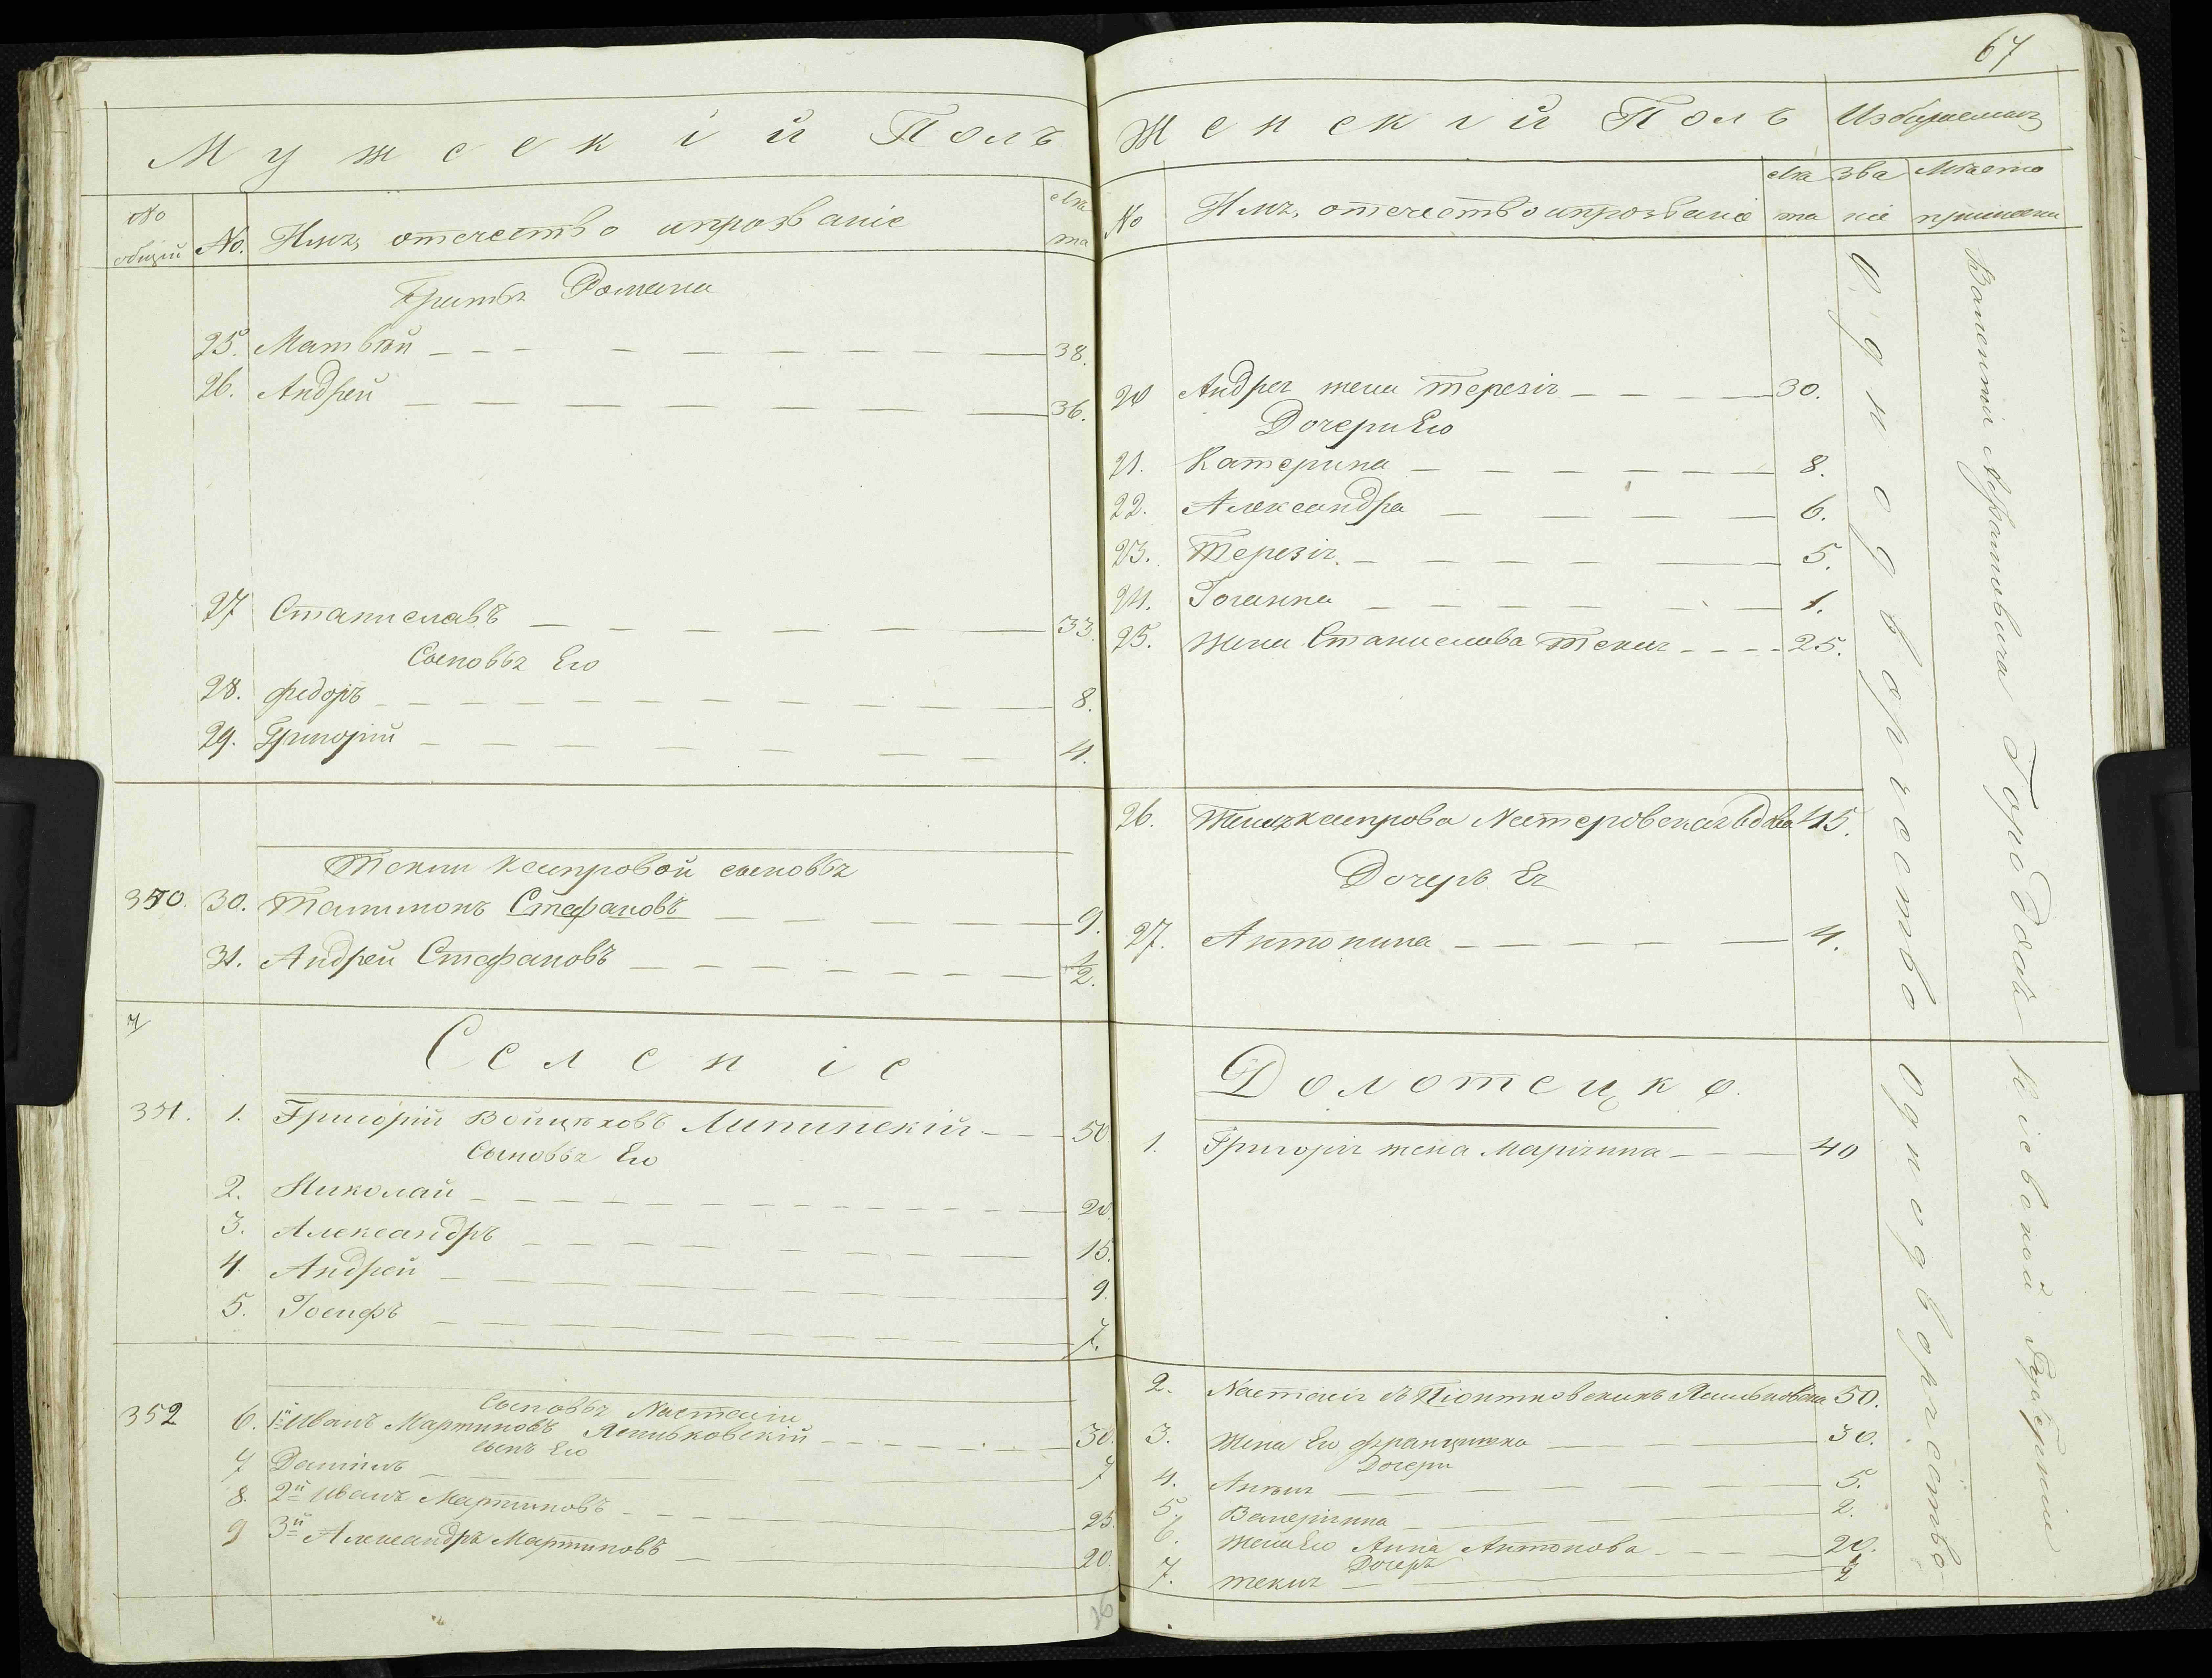 67
Мужескій Полъ
№ общій
№.
Имя, отечество и прозваніе
лѣта
Братья Романа
25. Матвѣй 38.
26. Андрей 36.
27 Станиславъ 33.
Сыновья Его
28. Федоръ 8.
29. Григорій 4.
Текли Ксипровой сыновья
350. 30. Стефановъ 9.
31. Андрей Стефановъ 1/2.
Селеніе
351. 1. Григорій Войцѣховъ Липинскій 50.
Сыновья Его
2. Николай 20.
3. Александръ 15.
4. Андрей 9.
5. Іосифъ 7.
Сыновья Настасіи
352 6. 1й Иванъ Мартиновъ 30.
сынъ Его
7 Даніилъ 7
8. 2й Иванъ Мартиновъ 25.
9 3й Александръ Мартиновъ 20.
Женскій Полъ
Избираемыя
№
Имя, отечество и прозваніе
лѣта
званіе
Мѣсто приписки
20 Андрея жена Терезія 30.
Дочери Его
21. Катерина 8.
22. Александра 6.
23. Терезія. 5.
24. Іоганна 1.
25. Жена Станислава Текля 25.
26. вдова 45.
Дочерь Ея
27. Антонина 4.
Долотецко.
1. Григорія жена Маріянна 40
2. Настасія съ Піонтковскихъ 50.
3. Жена Его Францишка 30.
Дочери
4. 5.
5. Валеріянна 2.
6. Жена Его Анна Антонова 20.
Дочерь
7. Текля 1/2
Однодворчество
Однодворчество
Городокъ Кіевской Губерніи